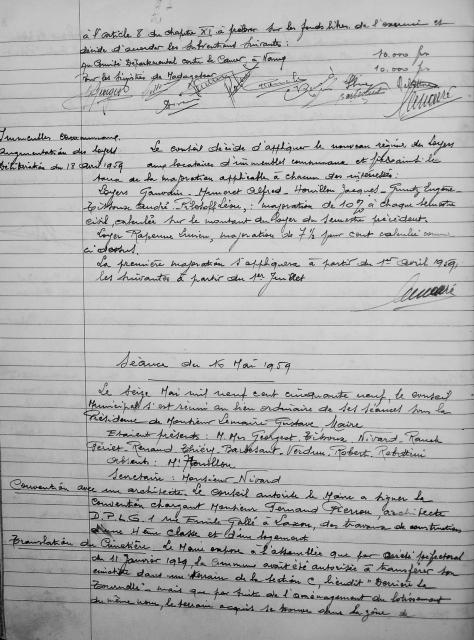 à l'article 8 du chapitre XI à prélever sur les fonds libres de l'exercice et
décide d'accorder les subventions suivantes :
au Comité Départemental contre le Cancer à Nancy 10.000 frs
Pour les Sinistrés de Madagascar 10.000 frs
Immeubles communaux.
Augmentation des loyers
Délibération du 18 Avril 1959
Le conseil décide d'appliquer le nouveau régime des loyers
aux locataires d'immeubles communaux et fixe ainsi le
taux de la majoration applicable à chacun des intéressés :
Loyers Alfred Jacques Eugène
André : majoration de 10% à chaque semestre
civil, calculée sur le montant du loyer du semestre précédent.
Loyer Lucien, majoration de 7½ pour cent calculée comme
ci dessus.
La première majoration s'appliquera à partir du 1er avril 1959,
les suivantes à partir du 1er Juillet
Séance du 16 Mai 1959
Le Seize Mai mil neuf cent cinquante neuf, le conseil
Municipal s'est réuni au lieu ordinaire de ses séances sous la
Présidence de Monsieur Lemaire Gustave Maire
Etaient présents : M. Mrs Georgeot Nivard.
Renaud Thiéry Verdun, Robert,
Absents : Mr Houillon
Secrétaire : Monsieur Nivard
Convention avec un architecte. Le Conseil autorise le Maire à signer la
convention chargeant Monsieur Fernand architecte
D.P.L.G. 1 rue Emile Gallé à des travaux de construction
d'une 4ème classe et d'un logement
Translation du Cimetière. Le Maire expose à l'assemblée que par arrêté préfectoral
du 11 Janvier 1929, la commune avait été autorisée à transférer son
cimetière dans un terrain de la section C, lieudit "Derrière la
" mais que par suite de l'aménagement du lotissement
du même nom, le terrain acquis se trouve dans la zone de